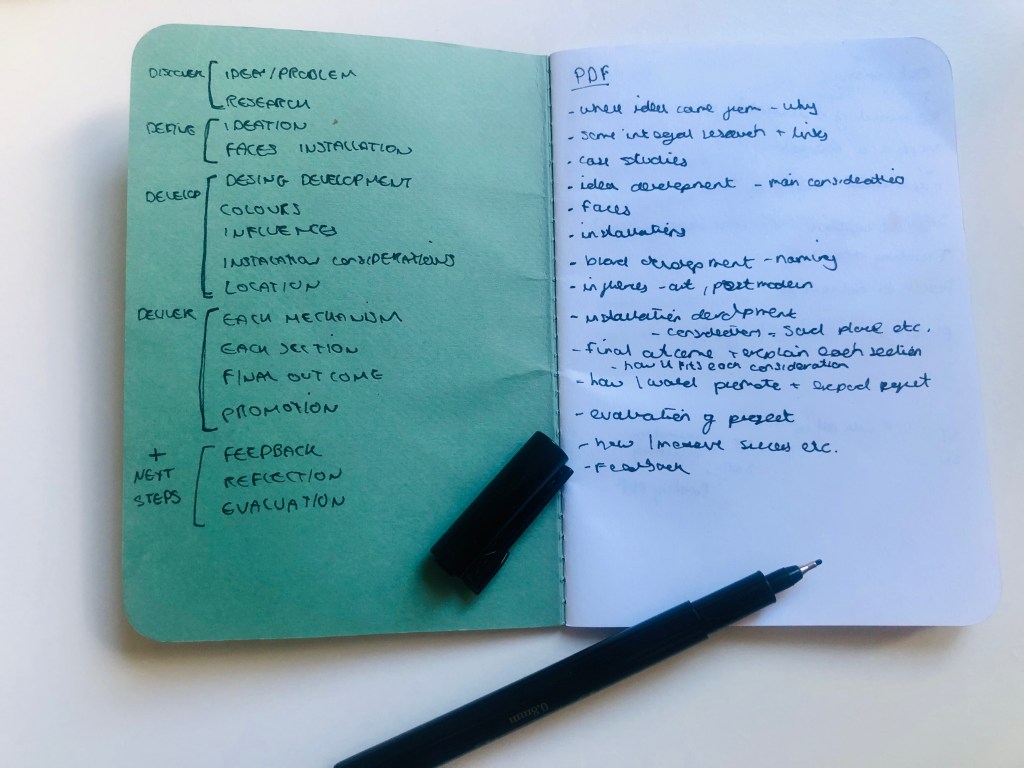 DISCOVER
IDEA/PROBLEM
RESEARCH
DEFINE
IDEATION
FACES INSTALLATION
DEVELOP
DESING DEVELOPMENT
COLOURS
INFLUENCES
INSTALLATION CONSIDERATIONS
LOCATION
DELIVER
EACH MECHANISM
EACH SECTION
FINAL OUTCOME
PROMOTION
+
NEXT
STEPS
FEEDBACK
REFLECTION
EVALUATION
PDF
- where idea came from - why
- some integral research + links
- case studies
- idea development - main considerations
- faces
- installations
- brand development - naming
- art, postmodern
- installation development
- considerations = place etc.
- final outcome + explain each section
- how it fits each consideration
- how I would promote + expand project
- evaluation of project
- how I measure success etc.
- Feedback
0.8mm